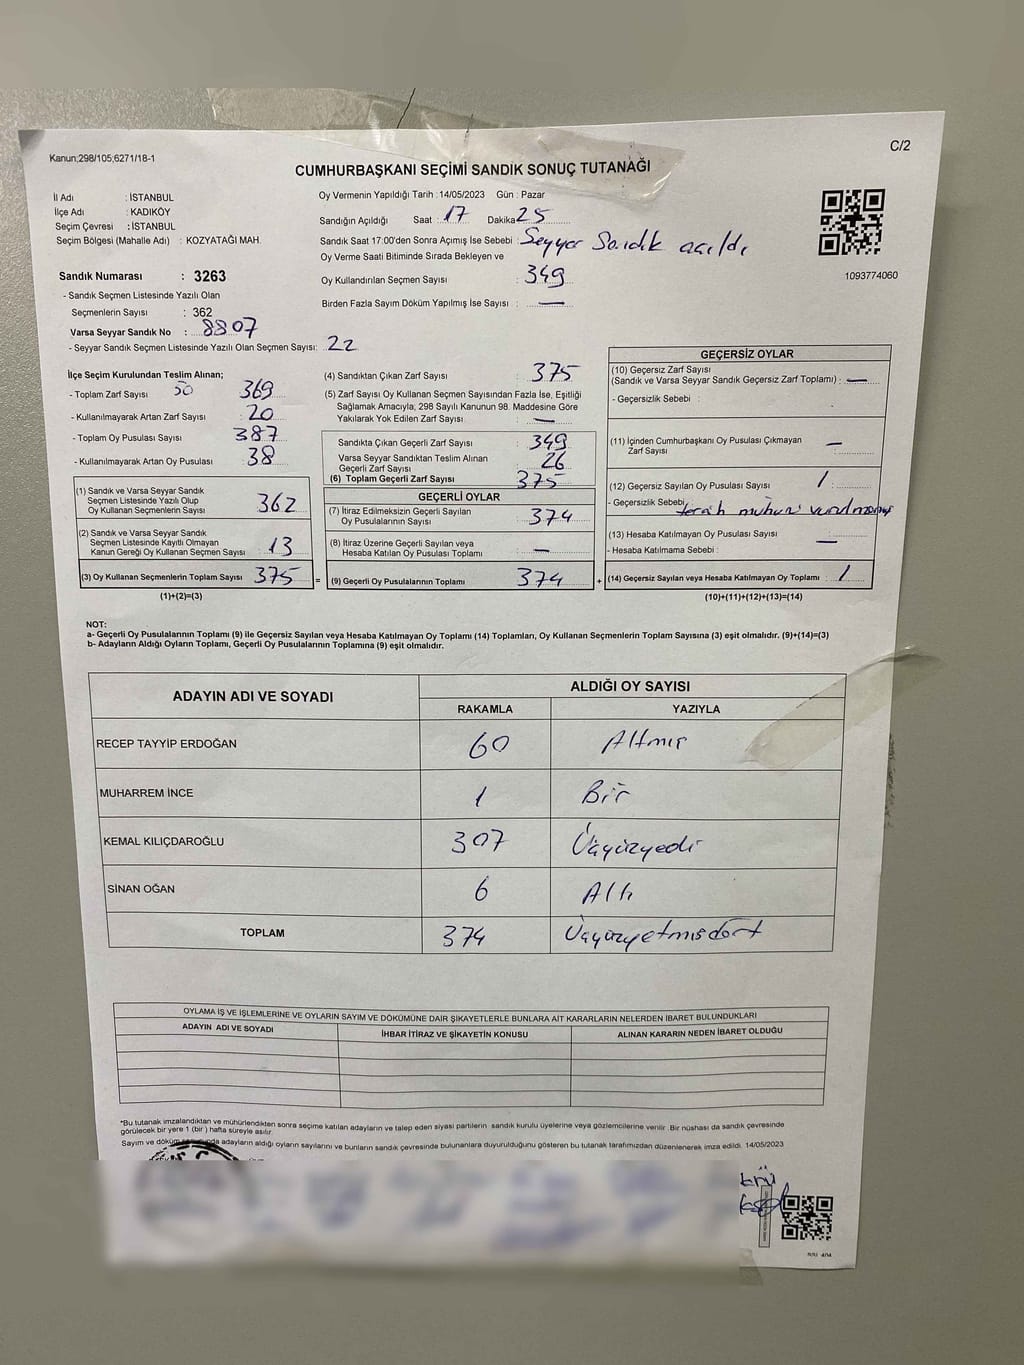 Kanun;298/105;6271/18-1
C/2
CUMHURBAŞKANI SEÇİMİ SANDIK SONUÇ TUTANAĞI
İl Adı : İSTANBUL
İlçe Adı : KADIKÖY
Seçim Çevresi : İSTANBUL
Seçim Bölgesi (Mahalle Adı) : KOZYATAĞI MAH.
Oy Vermenin Yapıldığı Tarih :14/05/2023 Gün : Pazar
Sandığın Açıldığı Saat :17 Dakika 25
Sandık Saat 17:00'den Sonra Açımış İse Sebebi : Seyyar Sandık açıldı
Oy Verme Saati Bitiminde Sırada Bekleyen ve
Oy Kullandırılan Seçmen Sayısı : 349
Birden Fazla Sayım Döküm Yapılmış İse Sayısı : —
1093774060
Sandık Numarası : 3263
- Sandık Seçmen Listesinde Yazılı Olan
Seçmenlerin Sayısı : 362
Varsa Seyyar Sandık No : 8807
- Seyyar Sandık Seçmen Listesinde Yazılı Olan Seçmen Sayısı: 22
İlçe Seçim Kurulundan Teslim Alınan;
- Toplam Zarf Sayısı 50 369
- Kullanılmayarak Artan Zarf Sayısı : 20
- Toplam Oy Pusulası Sayısı : 387
- Kullanılmayarak Artan Oy Pusulası : 38
(1) Sandık ve Varsa Seyyar Sandık
Seçmen Listesinde Yazılı Olup
Oy Kullanan Seçmenlerin Sayısı : 362
(2) Sandık ve Varsa Seyyar Sandık
Seçmen Listesinde Kayıtlı Olmayan
Kanun Gereği Oy Kullanan Seçmen Sayısı : 13
(3) Oy Kullanan Seçmenlerin Toplam Sayısı : 375 =
(1)+(2)=(3)
(4) Sandıktan Çıkan Zarf Sayısı : 375
(5) Zarf Sayısı Oy Kullanan Seçmen Sayısından Fazla İse, Eşitliği
Sağlamak Amacıyla; 298 Sayılı Kanunun 98. Maddesine Göre
Yakılarak Yok Edilen Zarf Sayısı : —
Sandıkta Çıkan Geçerli Zarf Sayısı : 349
Varsa Seyyar Sandıktan Teslim Alınan
Geçerli Zarf Sayısı : 26
(6) Toplam Geçerli Zarf Sayısı : 375
GEÇERLİ OYLAR
(7) İtiraz Edilmeksizin Geçerli Sayılan
Oy Pusulalarının Sayısı : 374
(8) İtiraz Üzerine Geçerli Sayılan veya
Hesaba Katılan Oy Pusulası Toplamı : —
(9) Geçerli Oy Pusulalarının Toplamı : 374 +
GEÇERSİZ OYLAR
(10) Geçersiz Zarf Sayısı
(Sandık ve Varsa Seyyar Sandık Geçersiz Zarf Toplamı) : —
- Geçersizlik Sebebi :
(11) İçinden Cumhurbaşkanı Oy Pusulası Çıkmayan
Zarf Sayısı : —
(12) Geçersiz Sayılan Oy Pusulası Sayısı : 1
- Geçersizlik Sebebi tercih mührü vurulmamış
(13) Hesaba Katılmayan Oy Pusulası Sayısı : —
- Hesaba Katılmama Sebebi :
(14) Geçersiz Sayılan veya Hesaba Katılmayan Oy Toplamı : 1
(10)+(11)+(12)+(13)=(14)
NOT:
a- Geçerli Oy Pusulalarının Toplamı (9) ile Geçersiz Sayılan veya Hesaba Katılmayan Oy Toplamı (14) Toplamları, Oy Kullanan Seçmenlerin Toplam Sayısına (3) eşit olmalıdır. (9)+(14)=(3)
b- Adayların Aldığı Oyların Toplamı, Geçerli Oy Pusulalarının Toplamına (9) eşit olmalıdır.
ADAYIN ADI VE SOYADI
ALDIĞI OY SAYISI
RAKAMLA YAZIYLA
RECEP TAYYİP ERDOĞAN 60 Altmış
MUHARREM İNCE 1 Bir
KEMAL KILIÇDAROĞLU 307 Üçyüzyedi
SİNAN OĞAN 6 Altı
TOPLAM 374 Üçyüzyetmişdört
OYLAMA İŞ VE İŞLEMLERİNE VE OYLARIN SAYIM VE DÖKÜMÜNE DAİR ŞİKAYETLERLE BUNLARA AİT KARARLARIN NELERDEN İBARET BULUNDUKLARI
ADAYIN ADI VE SOYADI İHBAR İTİRAZ VE ŞİKAYETİN KONUSU ALINAN KARARIN NEDEN İBARET OLDUĞU
*Bu tutanak imzalandıktan ve mühürlendikten sonra seçime katılan adayların ve talep eden siyasi partilerin sandık kurulu üyelerine veya gözlemcilerine verilir. Bir nüshası da sandık çevresinde
görülecek bir yere 1 (bir) hafta süreyle asılır.
Sayım ve döküm sonucunda adayların aldığı oyların sayılarını ve bunların sandık çevresinde bulunanlara duyurulduğunu gösteren bu tutanak tarafımızdan düzenlenerek imza edildi. 14/05/2023